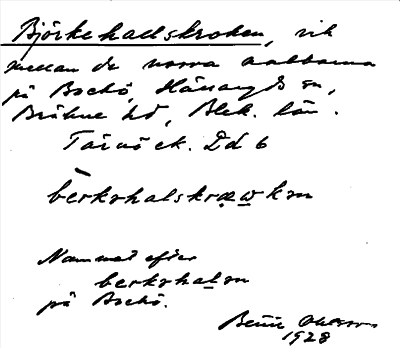 Björkehalskroken, vik
mellan de norra uddarna
på Bockö, Hällaryds sn,
Bräkne hd, Blek. län.
Tärnö ek. Dd 6
bɛrkɘhalskræwkɘn
Namnet efter
berkɘhalsɘn
på Bockö.
Bertil Ohlsson
1928